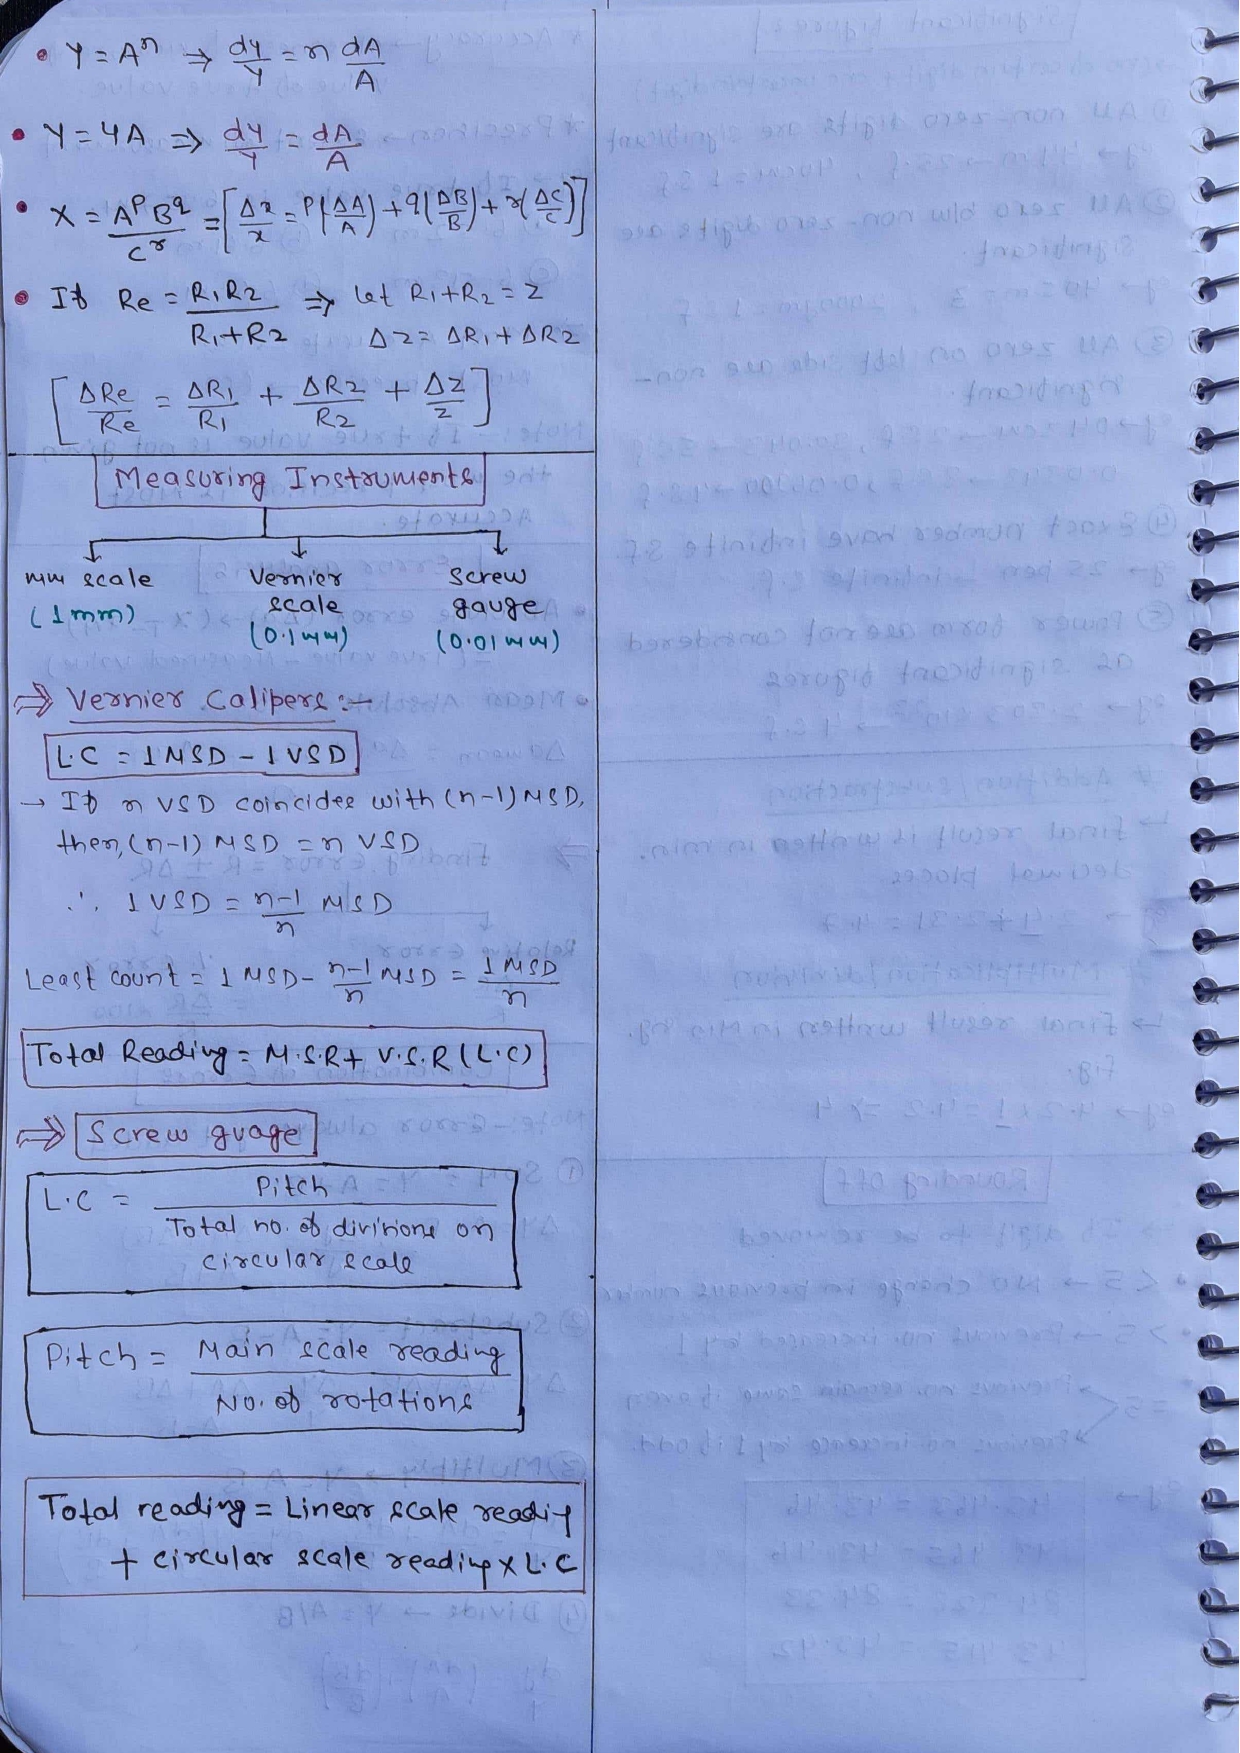 • Y = Aⁿ ⇒ dy/Y = n dA/A
• Y = 4A ⇒ dy/Y = dA/A
• X = A^P B^q / C^r = [Δx/x = P(ΔA/A) + q(ΔB/B) + r(ΔC/C)]
• If Re = R1R2 / R1+R2 ⇒ let R1+R2 = Z
ΔZ = ΔR1 + ΔR2
[ΔRe/Re = ΔR1/R1 + ΔR2/R2 + ΔZ/Z]
Measuring Instruments
mm scale Vernier scale Screw gauge
(1mm) (0.1mm) (0.01mm)
⇒ Vernier Calipers :-
L.C = 1 MSD - 1 VSD
→ If n VSD coincides with (n-1) MSD,
then, (n-1) MSD = n VSD
∴ 1 VSD = n-1/n MSD
Least count = 1 MSD - n-1/n MSD = 1 MSD/n
Total Reading = M.S.R + V.S.R (L.C)
⇒ Screw guage
L.C = Pitch / Total no. of divisions on circular scale
Pitch = Main scale reading / No. of rotations
Total reading = Linear scale reading
+ circular scale reading x L.C